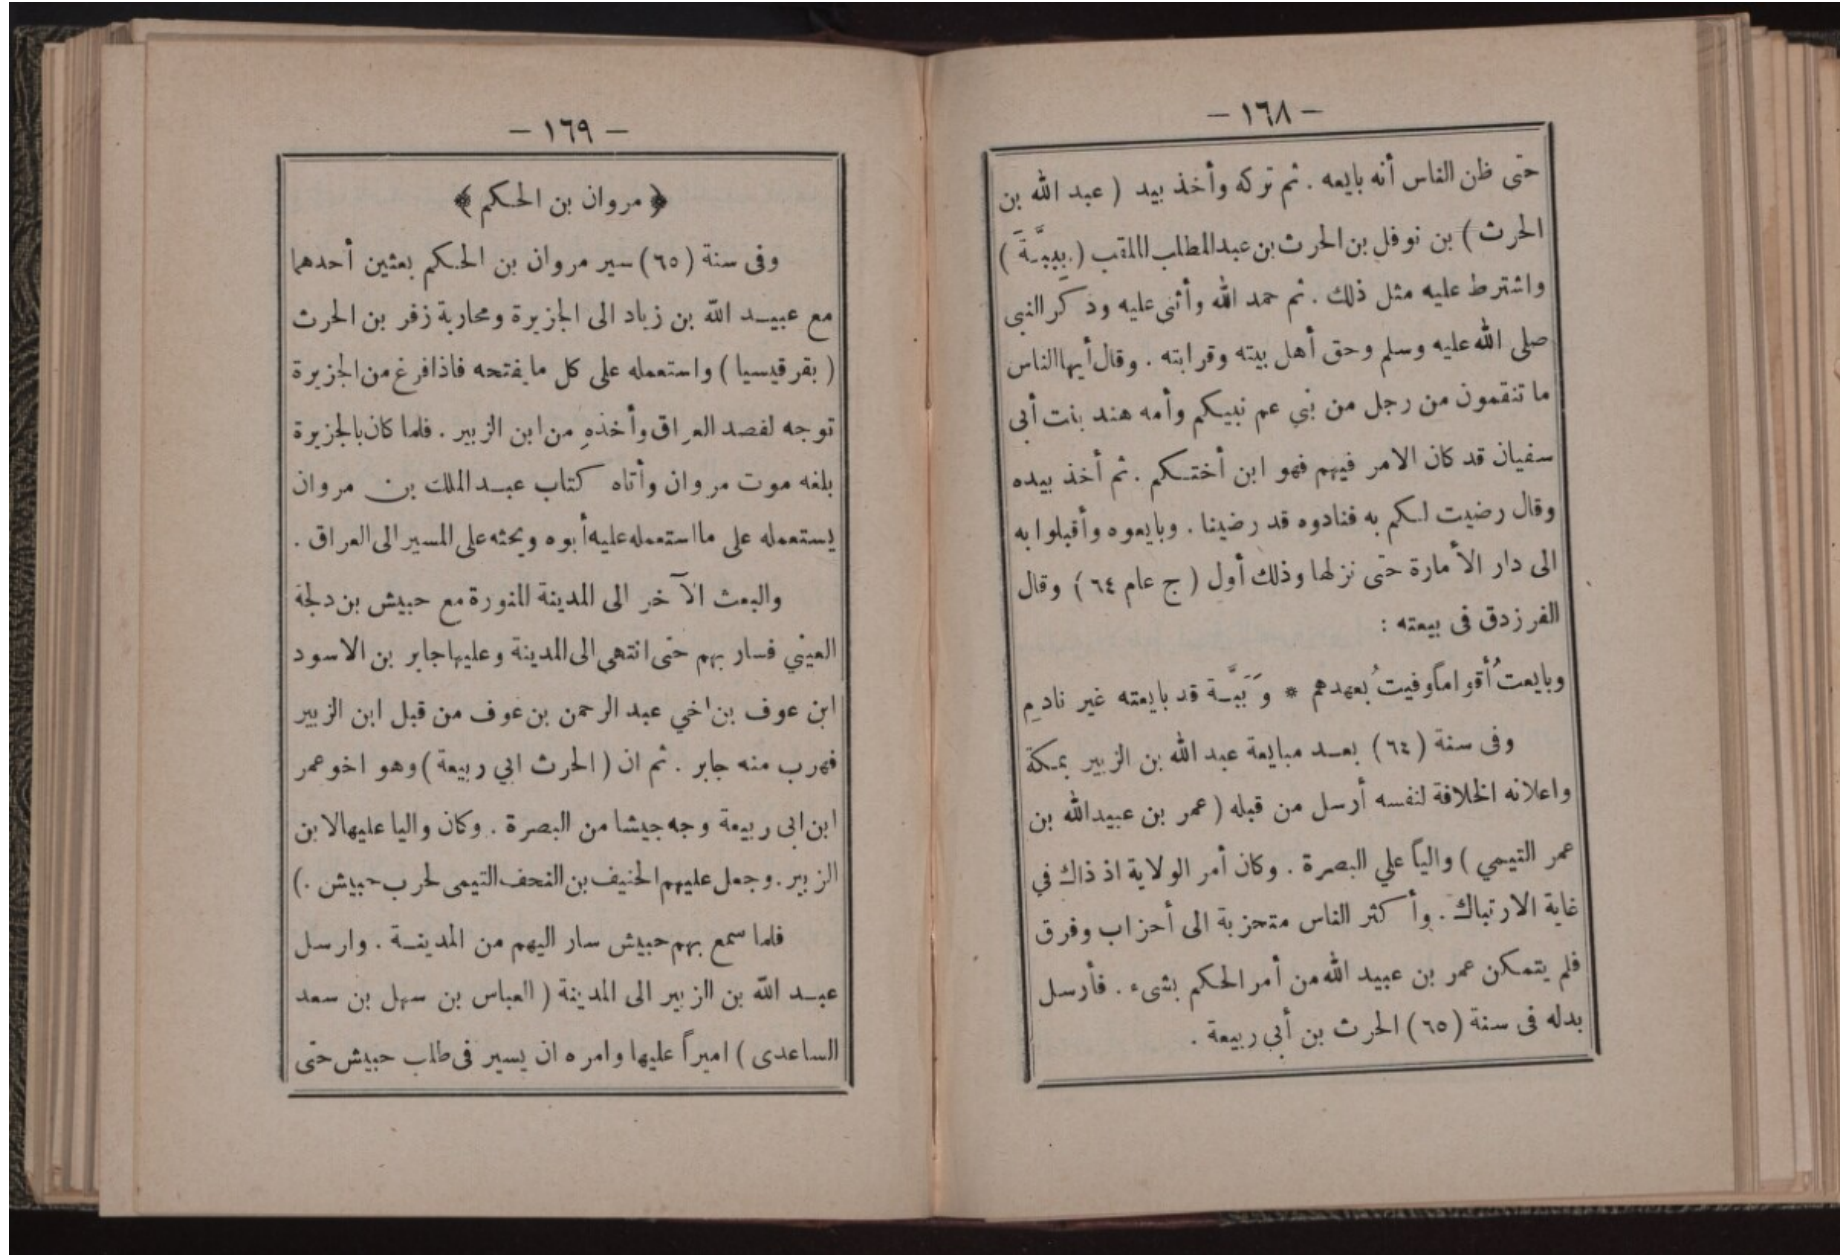 — ١٦٨ —
حتى ظن الناس أنه بايعه . ثم تركه وأخذ بيد ( عبد الله بن
الحرث ) بن نوفل بن الحرث بن عبدالمطلب الملقب ( ببَبَّةَ )
واشترط عليه مثل ذلك . ثم حمد الله وأثنى عليه وذكر النبى
صلى الله عليه وسلم وحق أهل بيته وقرابته . وقال أيها الناس
ما تنقمون من رجل من بني عم نبيكم وأمه هند بنت أبى
سفيان قد كان الامر فيهم فهو ابن أختكم . ثم أخذ بيده
وقال رضيت لكم به فنادوه قد رضينا . وبايعوه وأقبلوا به
الى دار الأمارة حتى نزلها وذلك أول ( ج عام ٦٤ ) وقال
الفرزدق فى بيعته :
وبايعتُ أقواماً وفيتُ بعهدهم * وَبَبَّة قد بايعته غير نادمِ
وفى سنة (٦٤) بعد مبايعة عبد الله بن الزبير بمكة
واعلانه الخلافة لنفسه أرسل من قبله ( عمر بن عبيدالله بن
عمر التيمي ) والياً علي البصرة . وكان أمر الولاية اذ ذاك في
غاية الارتباك . وأكثر الناس متحزبة الى أحزاب وفرق
فلم يتمكن عمر بن عبيد الله من أمر الحكم بشىء . فأرسل
بدله فى سنة (٦٥) الحرث بن أبي ربيعة .
— ١٦٩ —
﴿ مروان بن الحكم ﴾
وفى سنة (٦٥) سير مروان بن الحكم بعثين أحدهما
مع عبيد الله بن زياد الى الجزيرة ومحاربة زفر بن الحرث
( بقرقيسيا ) واستعمله على كل ما يفتحه فاذا فرغ من الجزيرة
توجه لقصد العراق وأخذهِ من ابن الزبير . فلما كان بالجزيرة
بلغه موت مروان وأتاه كتاب عبد الملك بن مروان
يستعمله على ما استعمله عليه أبوه ويحثه على المسير الى العراق .
والبعث الآخر الى المدينة المنورة مع حبيش بن دلجة
العيني فسار بهم حتى انتهى الى المدينة وعليها جابر بن الاسود
ابن عوف بن اخي عبد الرحمن بن عوف من قبل ابن الزبير
فهرب منه جابر . ثم ان ( الحرث ابي ربيعة ) وهو اخو عمر
ابن ابى ربيعة وجه جيشا من البصرة . وكان واليا عليها لابن
الزبير . وجعل عليهم الحنيف بن النحف التيمى لحرب حبيش . )
فلما سمع بهم حبيش سار اليهم من المدينة . وارسل
عبد الله بن الزبير الى المدينة ( العباس بن سهل بن سعد
الساعدى ) اميراً عليها وامره ان يسير فى طلب حبيش حتى